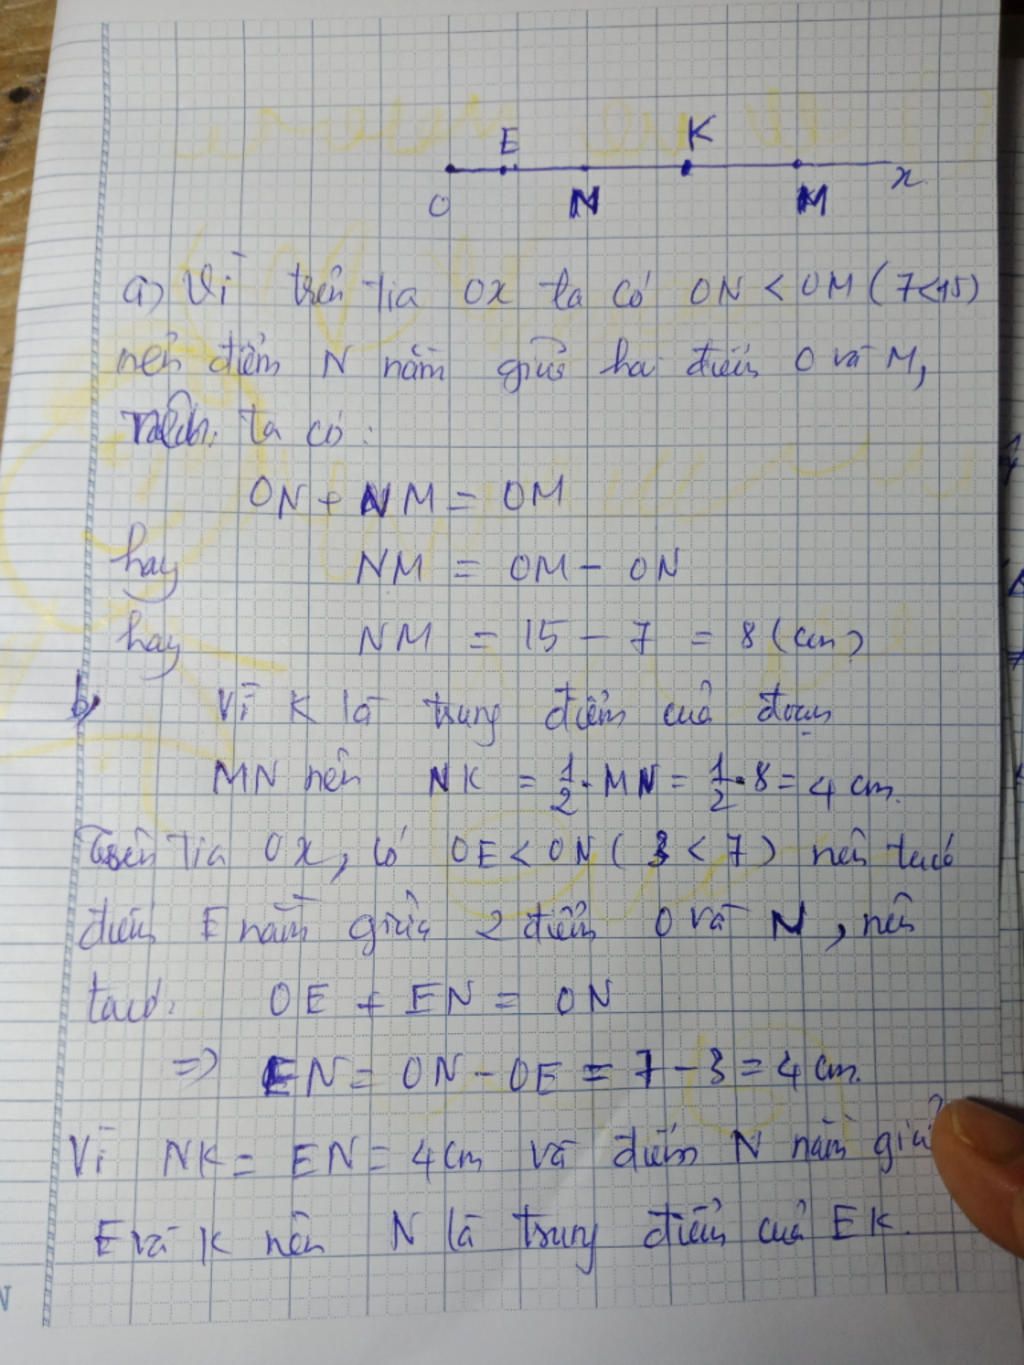 E K
O N M x
a) Vì trên tia Ox ta có ON < OM (7<15)
nên điểm N nằm giữa hai điểm O và M,
ta có:
ON + NM = OM
hay NM = OM - ON
hay NM = 15 - 7 = 8 (cm)
b, Vì K là trung điểm của đoạn
MN nên NK = 1/2 . MN = 1/2 . 8 = 4 cm.
Trên tia Ox, có OE < ON ( 3 < 7 ) nên ta có
điểm E nằm giữa 2 điểm O và N, nên
ta có: OE + EN = ON
=> EN = ON - OE = 7 - 3 = 4 cm.
Vì NK = EN = 4cm và điểm N nằm giữa
E và K nên N là trung điểm của EK.